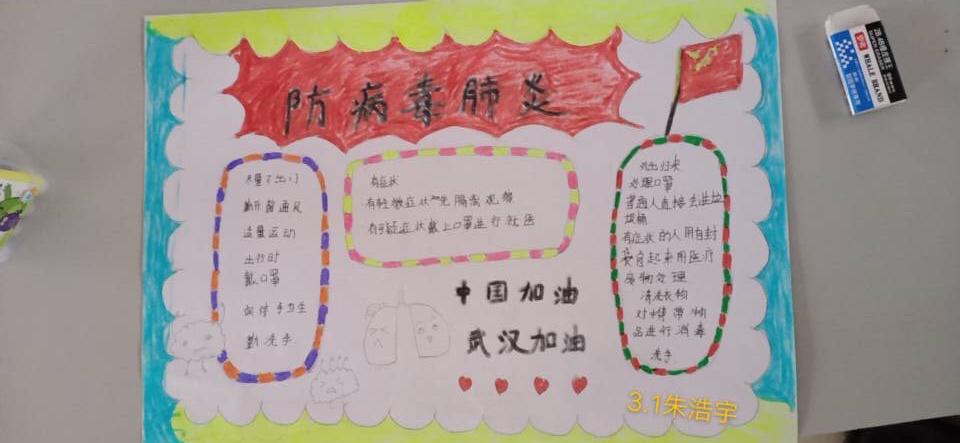 防病毒肺炎
尽量不出门
勤开窗通风
适量运动
出行时
戴口罩
保持手卫生
勤洗手
有症状
有轻微症状先隔离观察
有疑症状戴上口罩进行就医
中国加油
武汉加油
外出归来
处理口罩
普通人直接丢进垃
圾桶
有症状的人用自封
袋封起来用医疗
废物处理
清洗衣物
对携带物
品进行消毒
洗手
3.1朱浩宇
2B
WHALE BRAND